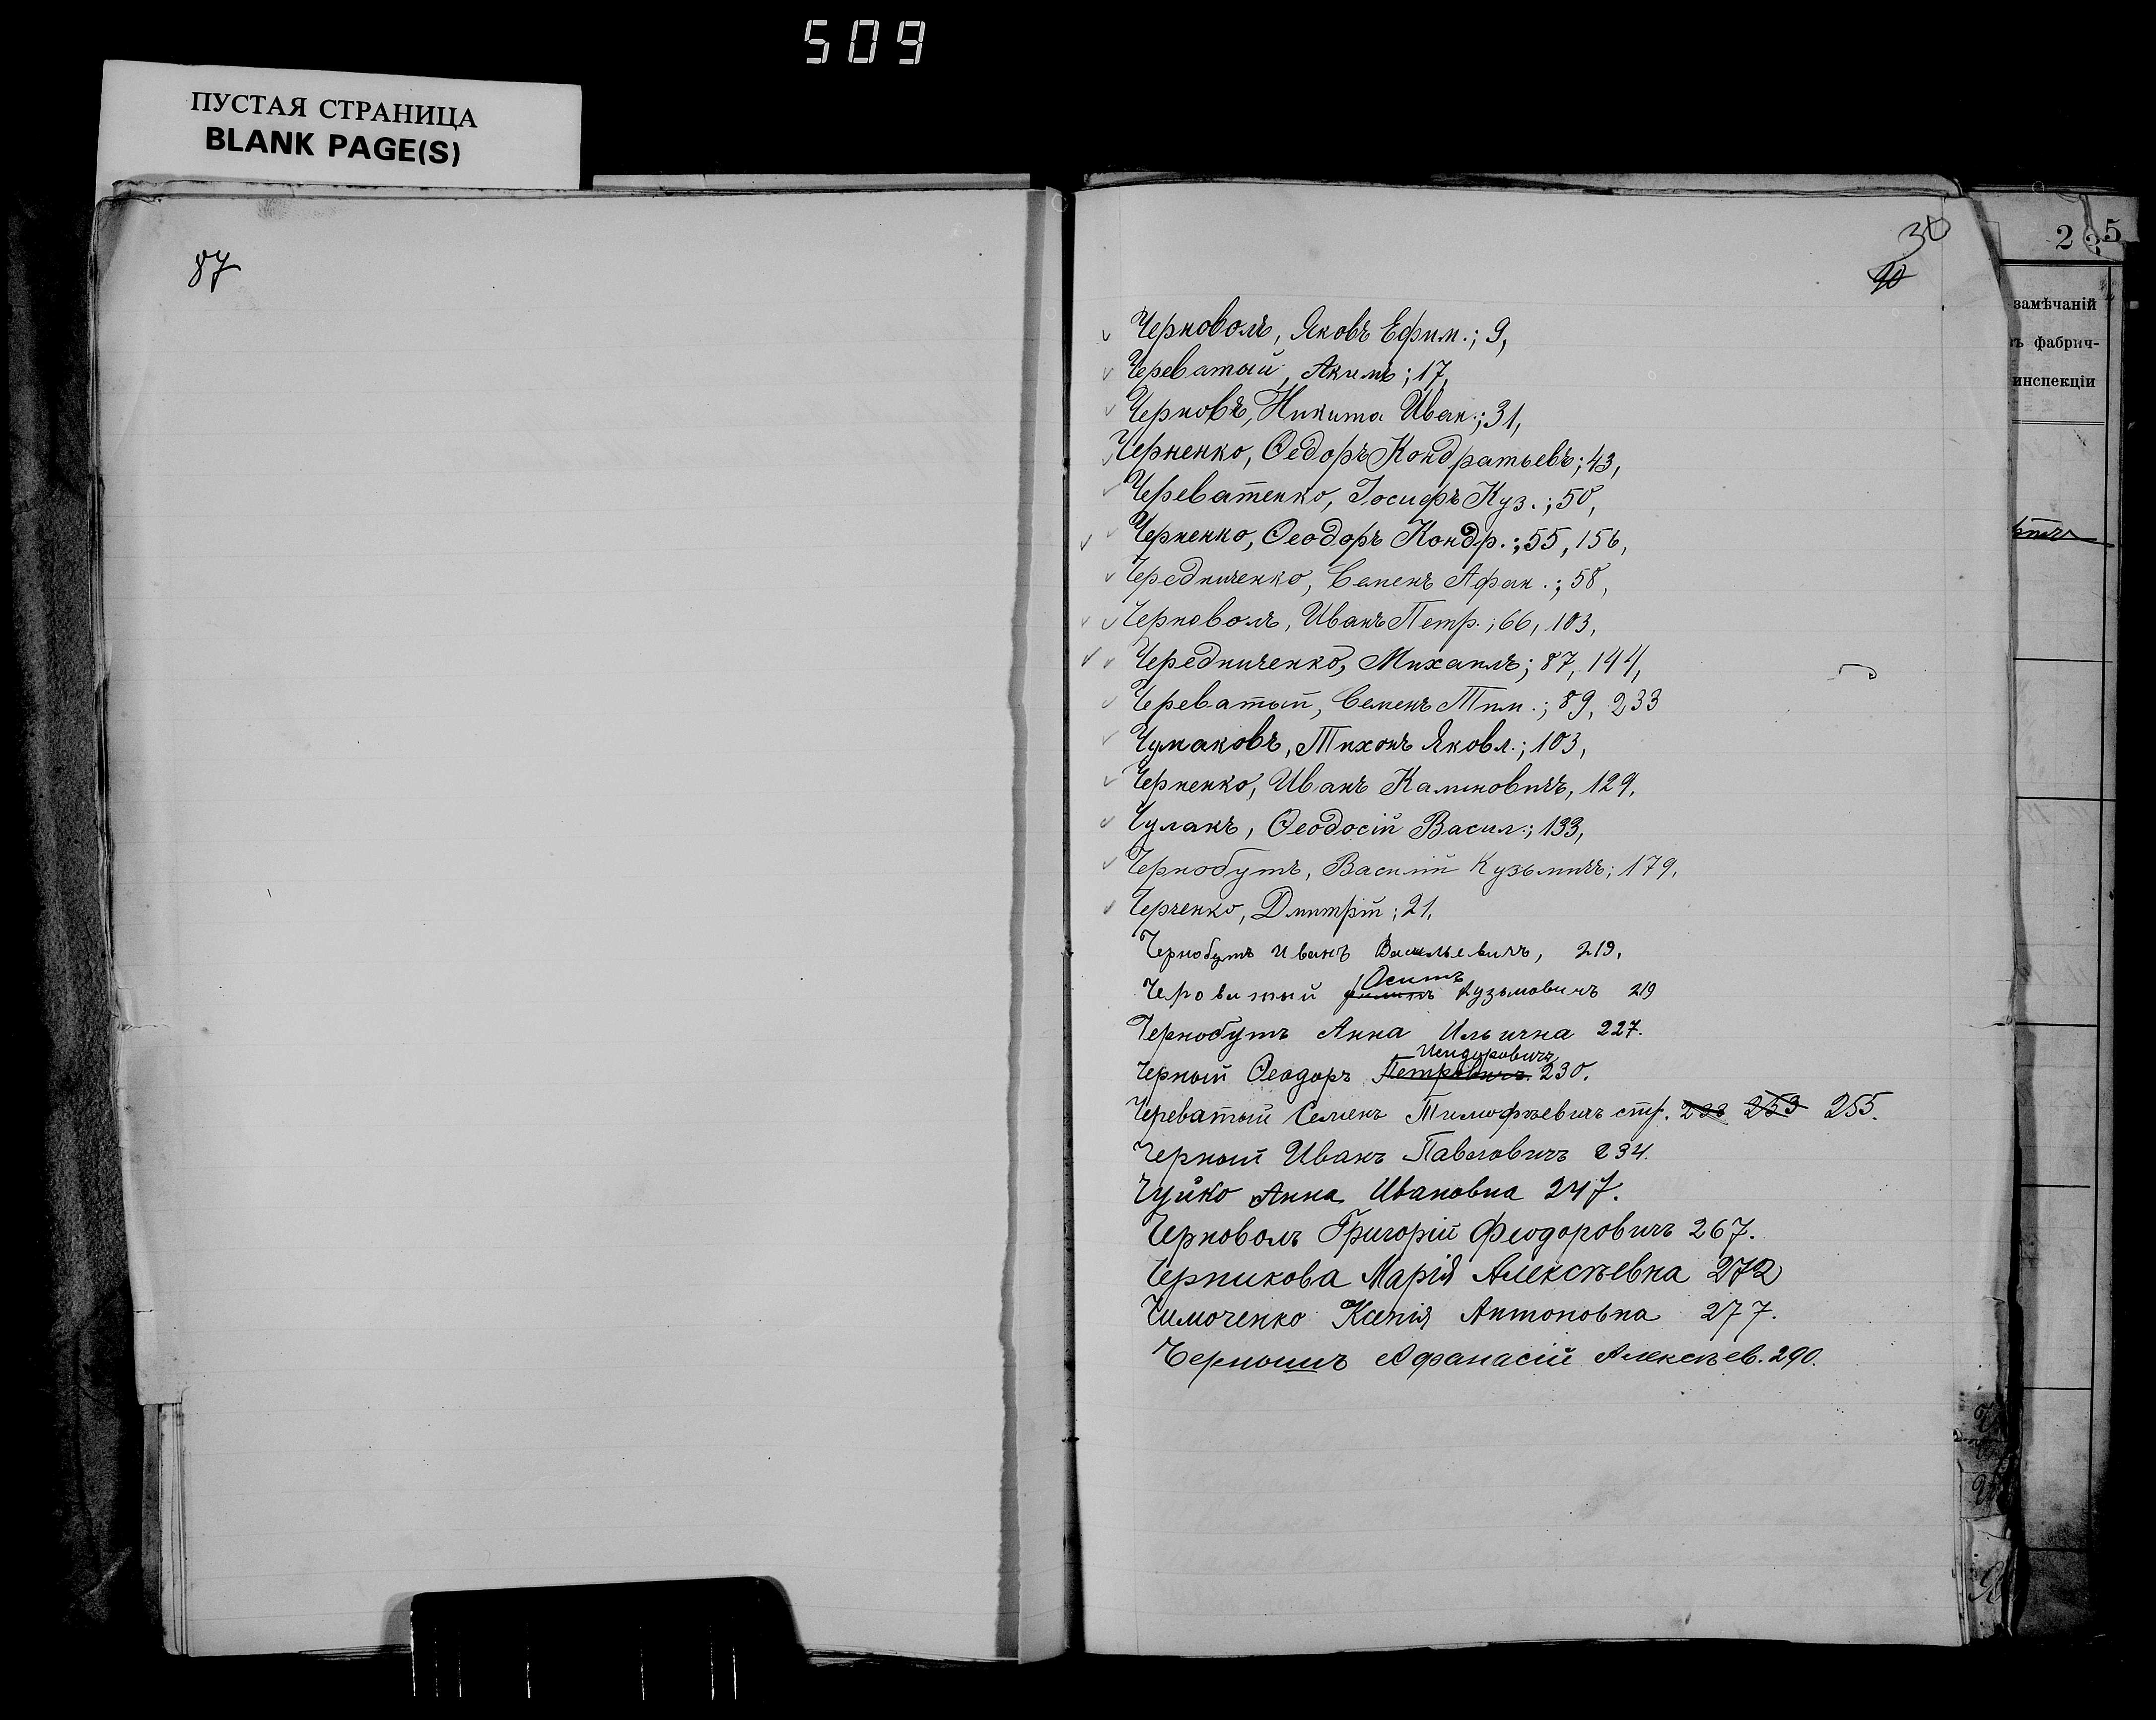 509
ПУСТАЯ СТРАНИЦА
BLANK PAGE(S)
87
30
90
2 5
замѣчаній
ъ фабрич-
инспекціи
Черноволъ, Яковъ Ефим.; 9,
Череватый, Акимъ; 17,
Черновъ, Никита Иван.; 31,
Черненко, Ѳедоръ Кондратьевъ; 43,
Череватенко, Іосифъ Куз.; 50,
Черненко, Ѳеодоръ Кондр.; 55, 156,
Чередниченко, Семенъ Афан.; 58,
Черноволъ, Иванъ Петр.; 66, 103,
Чередниченко, Михаилъ; 87, 144,
Череватый, Семенъ Тим.; 89, 233
Чумаковъ, Тихонъ Яковл.; 103,
Черненко, Иванъ Калиновичъ, 129,
Чулакъ, Ѳеодосій Васил.; 133,
Чернобутъ, Василій Кузьмичъ; 179,
Черченко, Дмитрій; 21,
Чернобутъ Иванъ Васильевичъ, 219,
Осипъ
Червитый Кузьмовичъ 219
Чернобутъ Анна Ильична 227.
Исидоровичъ
Черный Ѳеодоръ Петровичъ 230.
Череватый Семенъ Тимофѣевичъ стр. 233 253 255.
Черный Иванъ Павловичъ 234.
Чуйко Анна Ивановна 247.
Черноволъ Григорій Феодоровичъ 267.
Черникова Марія Алексѣевна 272
Чимоченко Ксенія Антоновна 277.
Чернышъ Афанасій Алексѣев. 290.